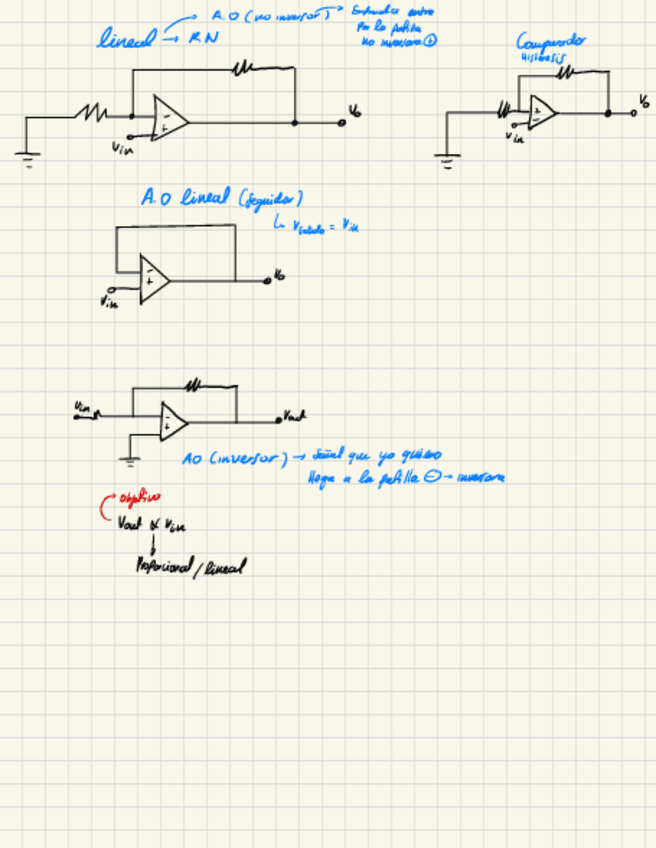 lineal → A.O (no inversor) → Entrada entra
Por la patilla
no inversora ⊕
→ RN
Comparador
Histeresis
Vo
Vin
Vo
Vin
A.O lineal (seguidor)
↳ Vsalida = Vin
Vo
Vin
Vin
Vout
AO (inversor) → Señal que yo quiero
llega a la patilla ⊖ → inversora
objetivo
Vout ∝ Vin
Proporcional / lineal